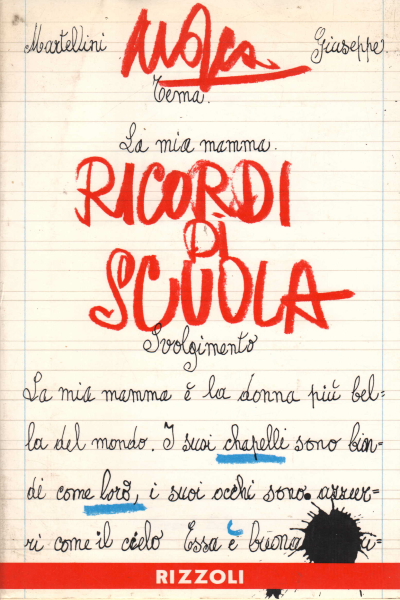 Martellini Mosca Giuseppe
Tema.
La mia mamma.
RICORDI
DI
SCUOLA
Svolgimento
La mia mamma è la donna più bel=
la del mondo. I suoi chapelli sono bion=
di come loro, i suoi occhi sono azzur=
ri come il cielo Essa è buona
RIZZOLI